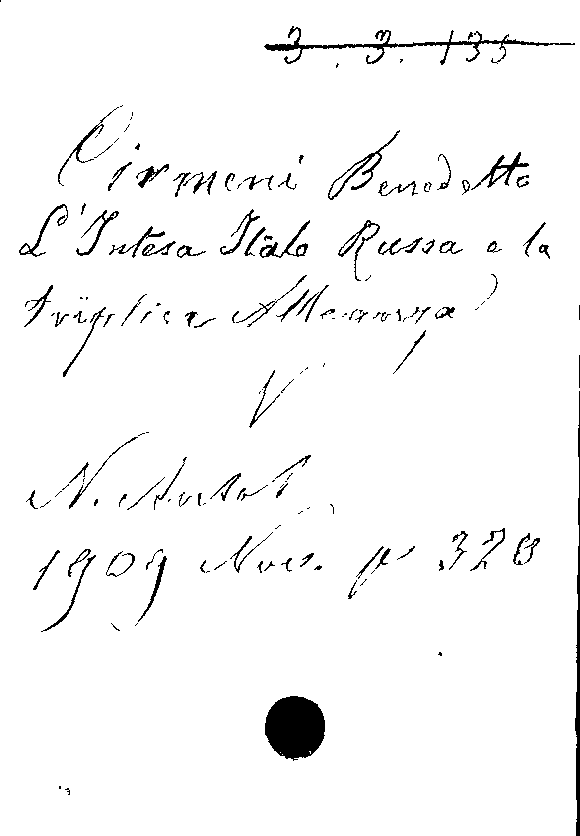 3. 3. 135
Cirmeni Benedetto
L'Intesa Italo Russa e la
triplice Alleanza
V
N. Antol
1909 Nov. p 320